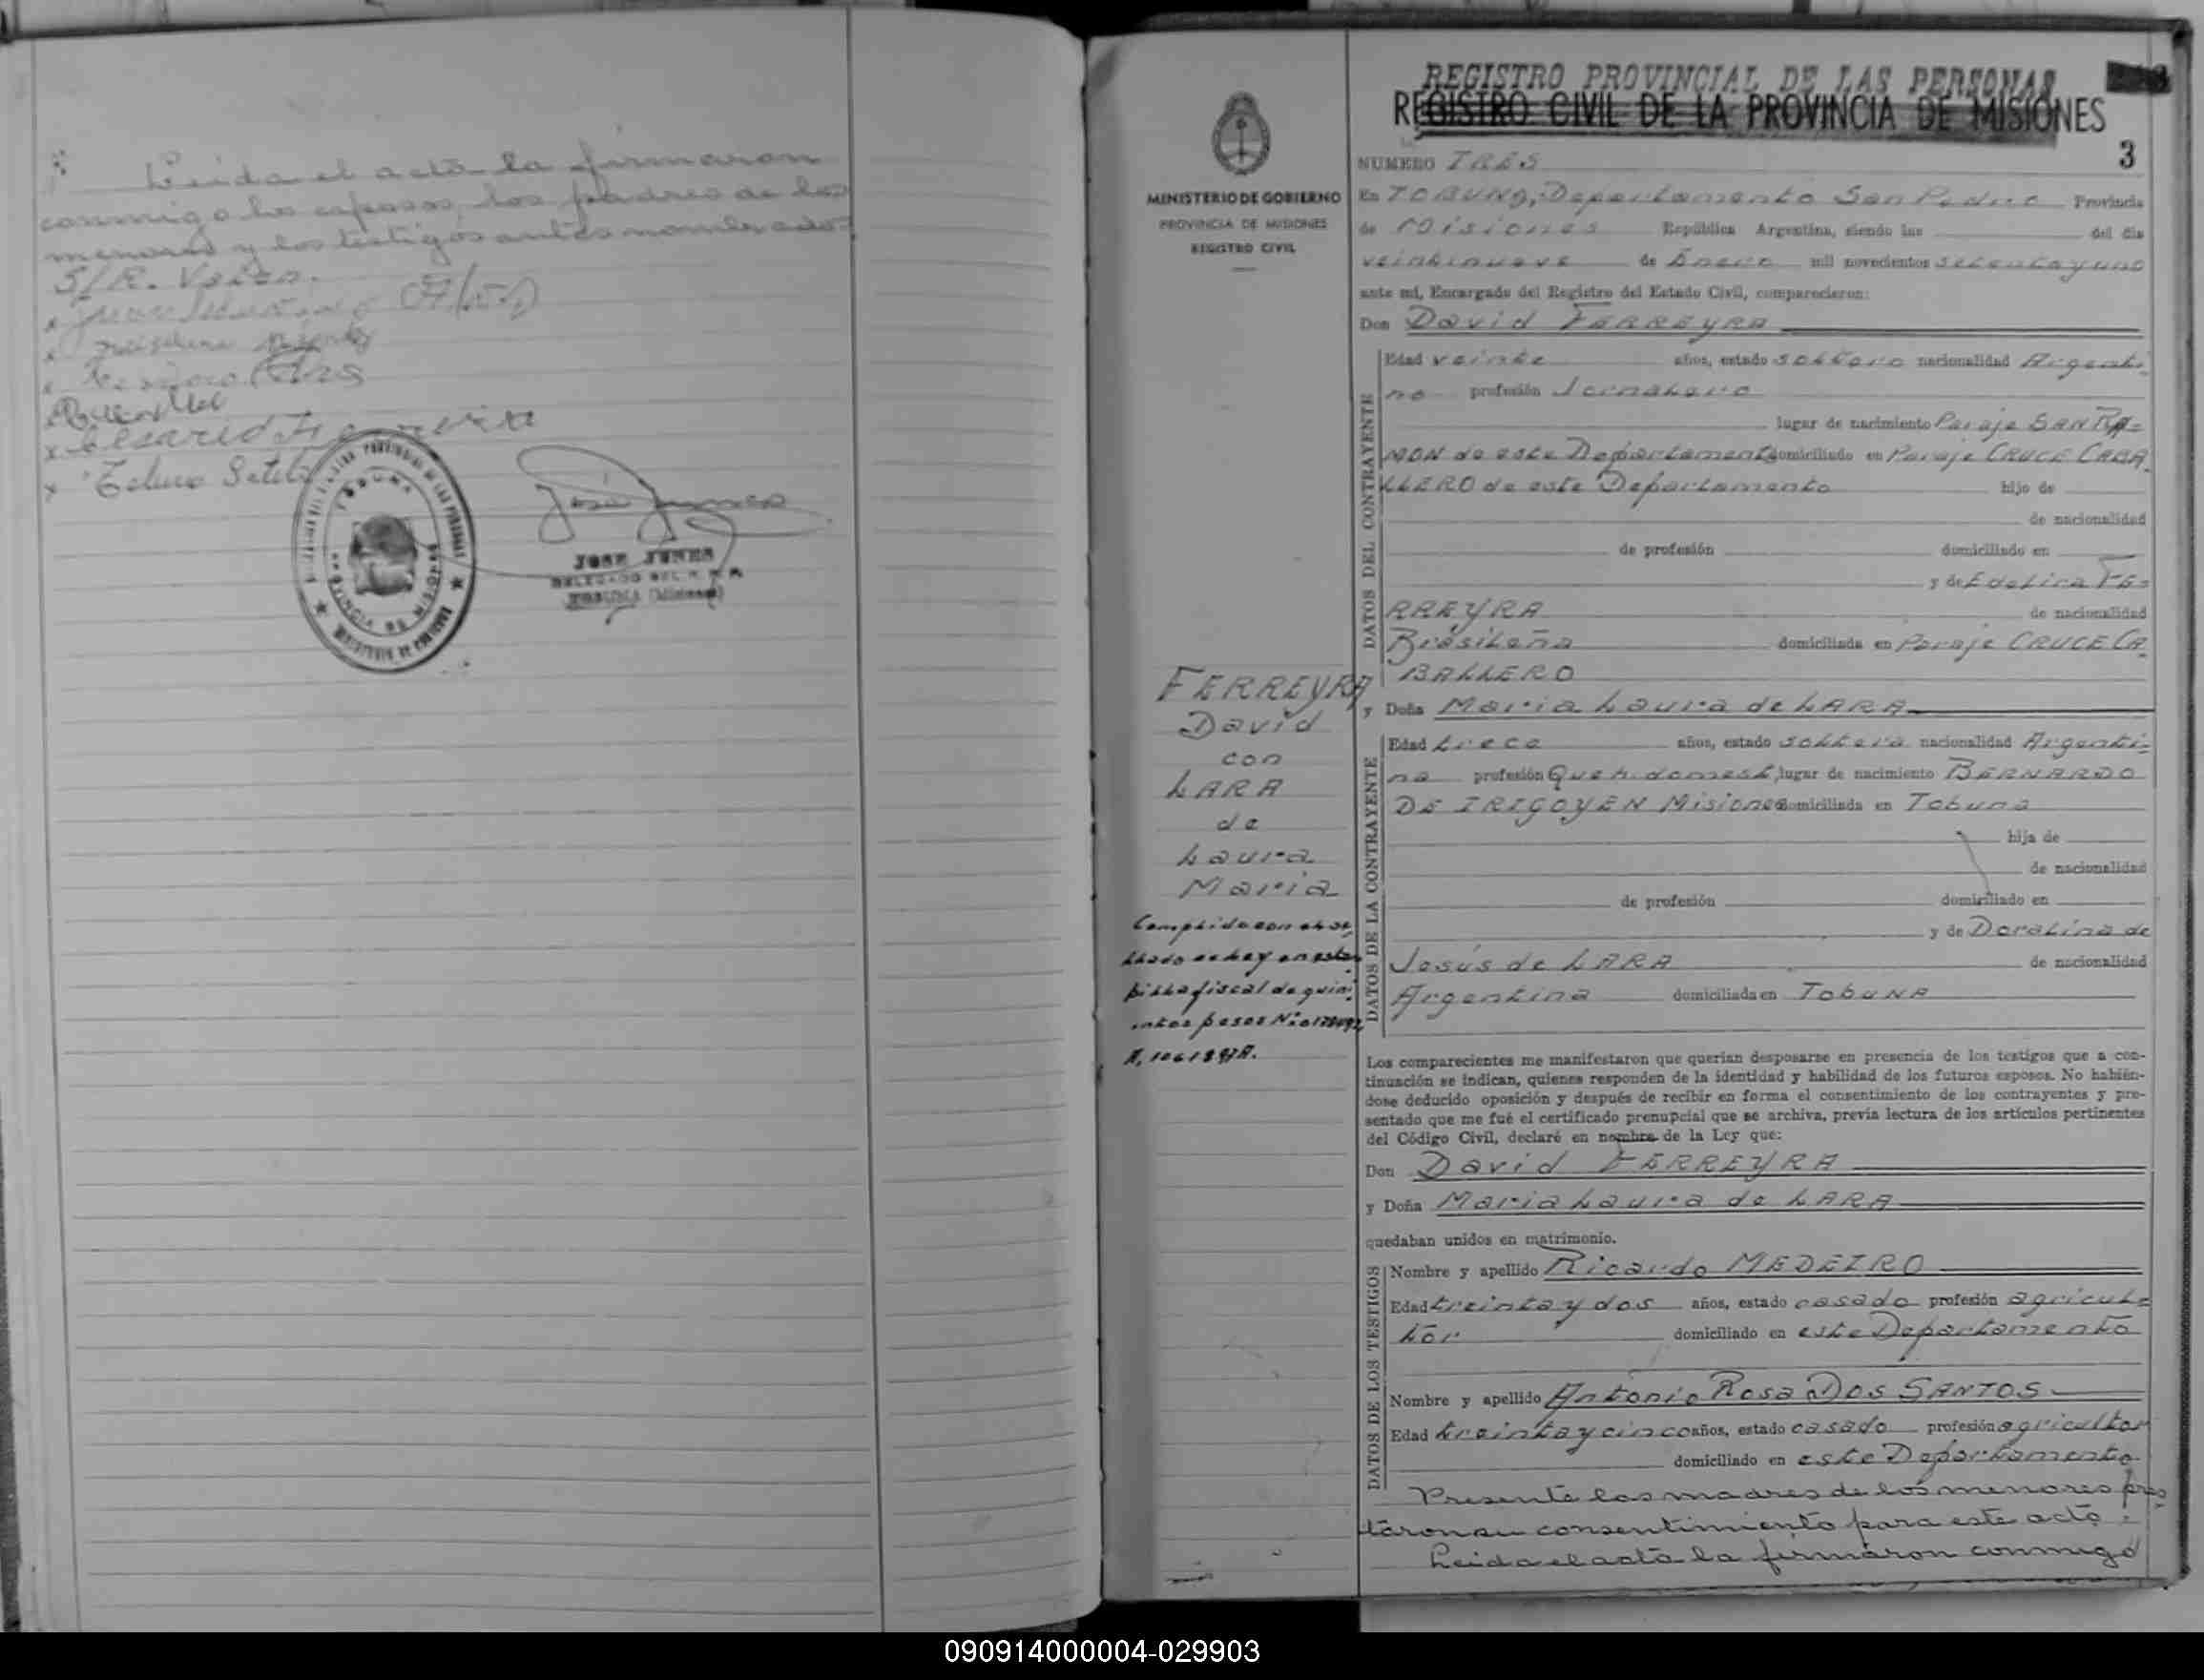 Leida el acta la firmaron
conmigo los esposos, los padres de los
menores y los testigos antes nombrados
S/R. Valen.
Telmo Sotelo
TOBUNA
PROVINCIA DE MISIONES
JOSE JUNES
DELEGADO DEL R. P. P.
TOBUNA (Misiones)
MINISTERIO DE GOBIERNO
PROVINCIA DE MISIONES
REGISTRO CIVIL
FERREYRA
David
con
LARA
de
Laura
Maria
Cumplido con el se-
llado de ley en estam-
pilla fiscal de quini-
entos pesos
REGISTRO PROVINCIAL DE LAS PERSONAS
REGISTRO CIVIL DE LA PROVINCIA DE MISIONES
3
NUMERO TRES
En TOBUNA, Departamento San Pedro Provincia
de Misiones República Argentina, siendo las del día
veintinueve de Enero mil novecientos setenta y uno
ante mí, Encargado del Registro del Estado Civil, comparecieron:
Don David FERREYRA
DATOS DEL CONTRAYENTE
Edad veinte años, estado soltero nacionalidad Argenti-
no profesión Jornalero
lugar de nacimiento Paraje SAN RA-
MON de este Departamento domiciliado en Paraje CRUCE CABA-
LLERO de este Departamento hijo de
de nacionalidad
de profesión domiciliado en
y de Edelira FE-
RREYRA de nacionalidad
Brasileña domiciliada en Paraje CRUCE CA-
BALLERO
y Doña Maria Laura de LARA
DATOS DE LA CONTRAYENTE
Edad trece años, estado soltera nacionalidad Argenti-
na profesión Queh. domest, lugar de nacimiento BERNARDO
DE IRIGOYEN Misiones domiciliada en Tobuna
hija de
de nacionalidad
de profesión domiciliado en
y de Doralina de
Jesús de LARA de nacionalidad
Argentina domiciliada en TobuNA
Los comparecientes me manifestaron que querían desposarse en presencia de los testigos que a con-
tinuación se indican, quienes responden de la identidad y habilidad de los futuros esposos. No habién-
dose deducido oposición y después de recibir en forma el consentimiento de los contrayentes y pre-
sentado que me fué el certificado prenupcial que se archiva, previa lectura de los artículos pertinentes
del Código Civil, declaré en nombre de la Ley que:
Don David FERREYRA
y Doña Maria Laura de LARA
quedaban unidos en matrimonio.
DATOS DE LOS TESTIGOS
Nombre y apellido Ricardo MEDEIRO
Edad treinta y dos años, estado casado profesión agricul-
tor domiciliado en este Departamento
Nombre y apellido Antonio Rosa DOS SANTOS
Edad treinta y cinco años, estado casado profesión agricultor
domiciliado en este Departamento
Presente las madres de los menores pres-
taron su consentimiento para este acto.
Leida el acta la firmaron conmigo
090914000004-029903